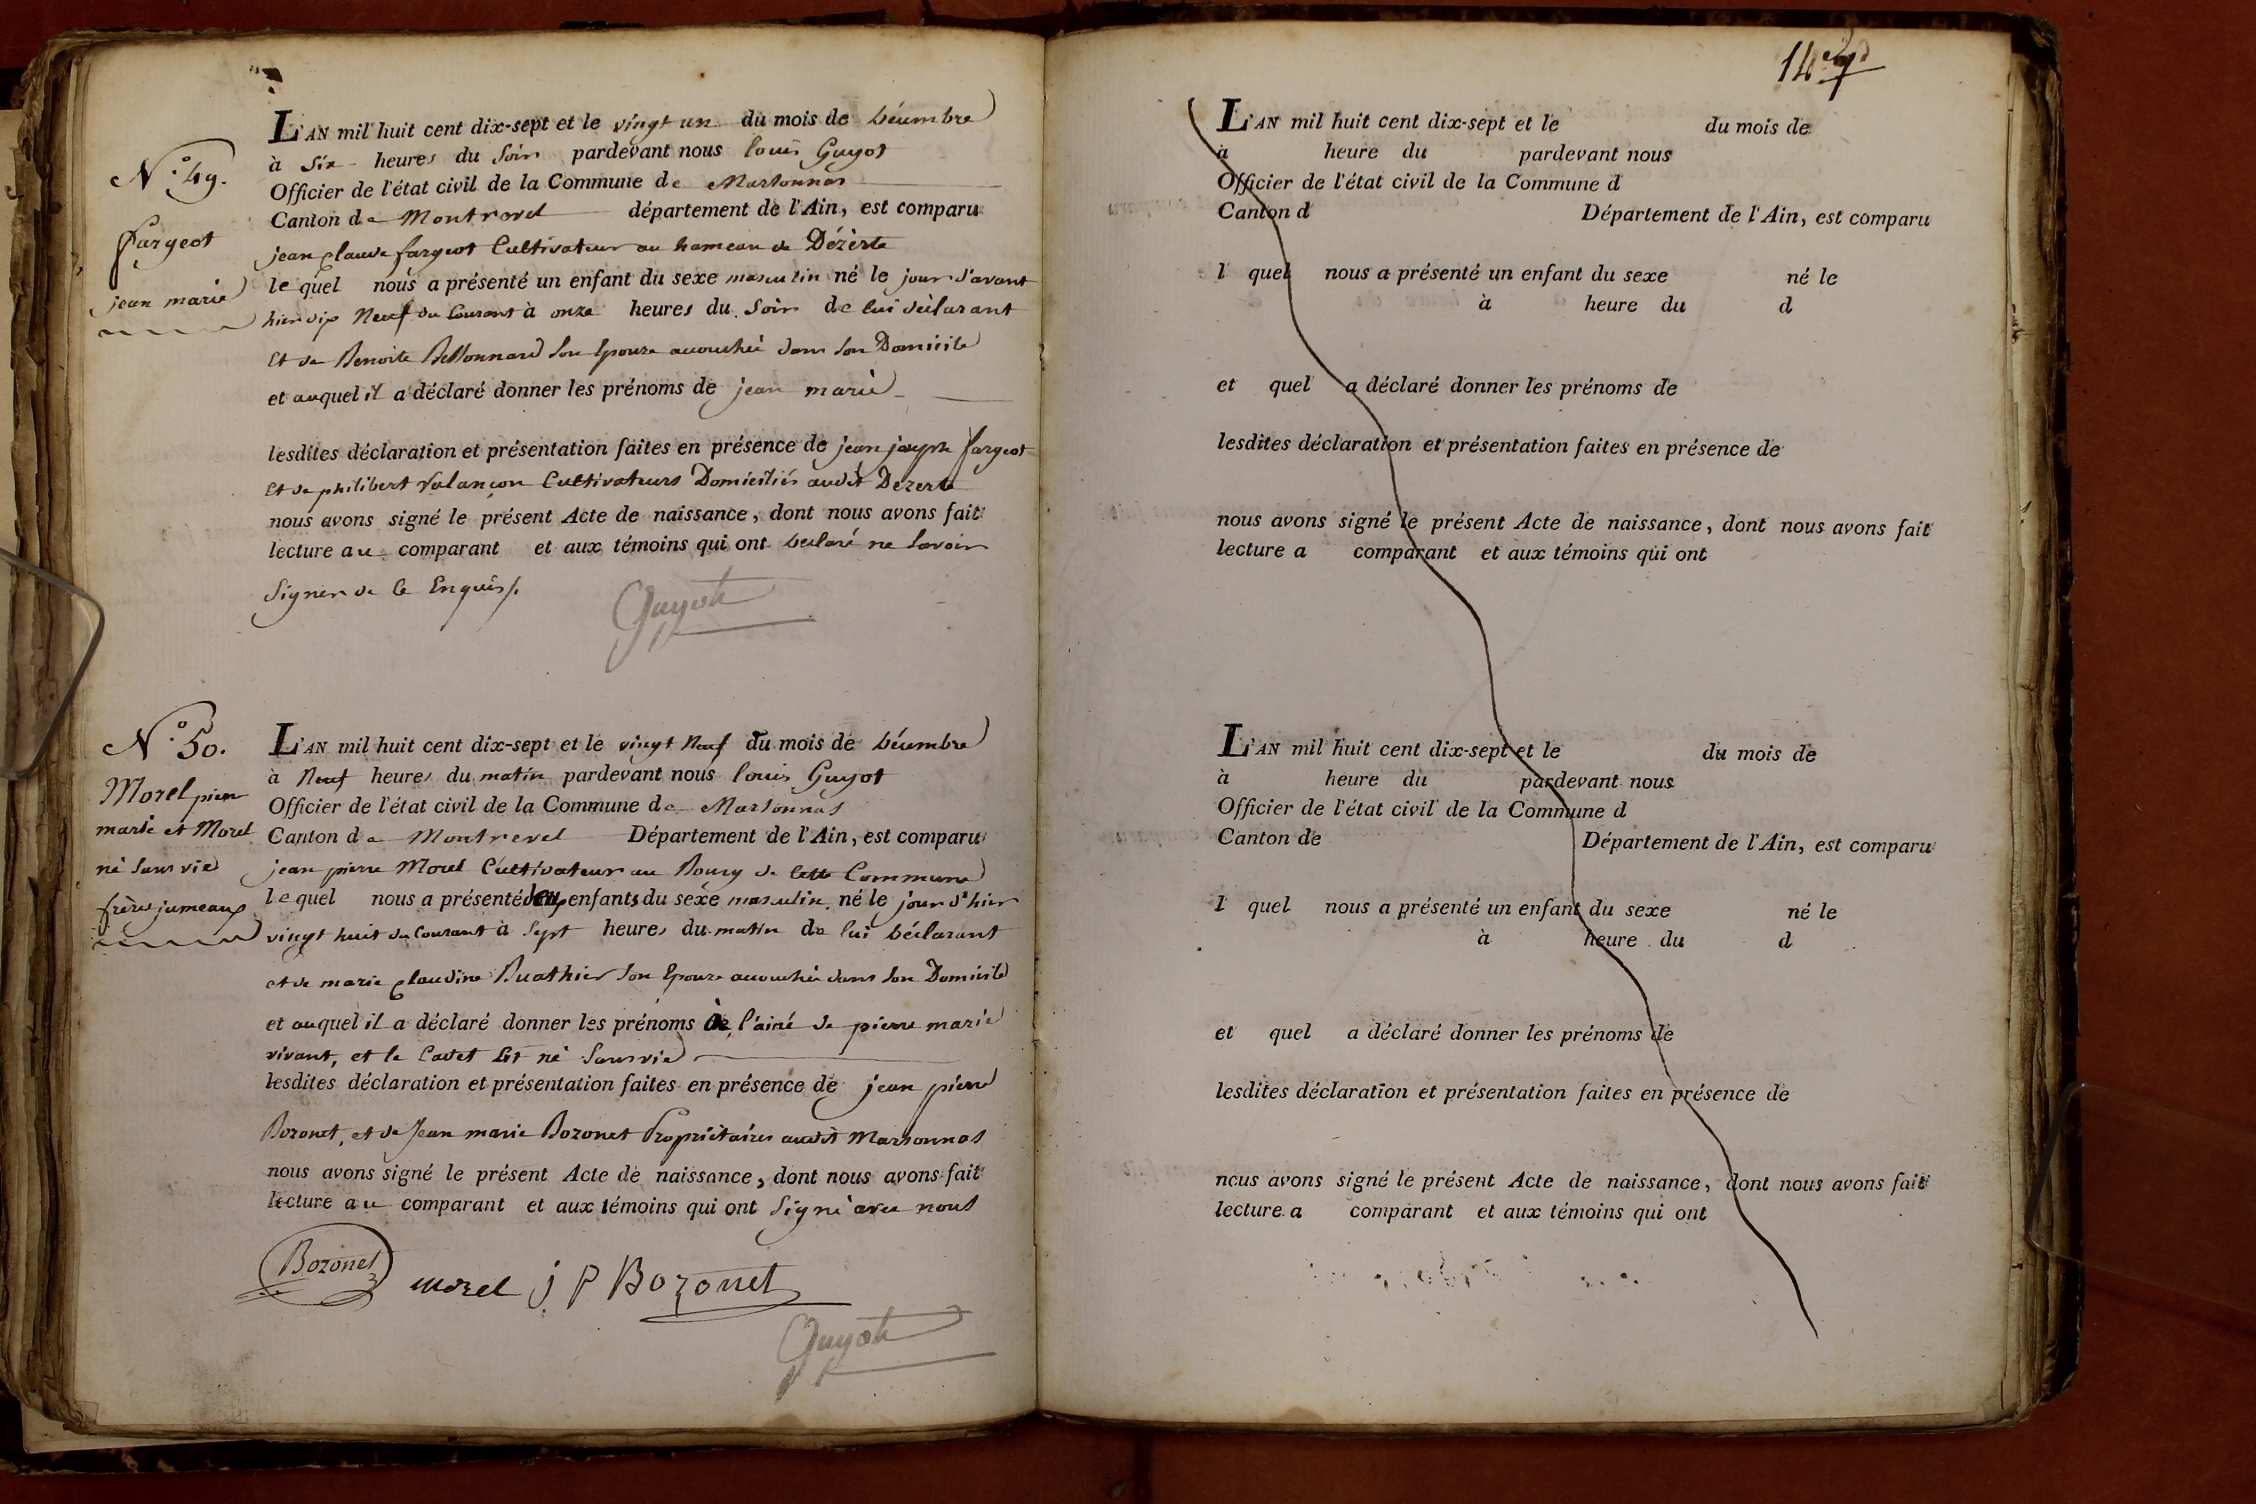 N.° 49.
fargeot
jean marie
L'AN mil huit cent dix-sept et le vingt un du mois de Décembre
à Six heures du Soir pardevant nous louis Guyot
Officier de l'état civil de la Commune de Marsonnas
Canton de Montrevel département de l'Ain, est comparu
jean Claude fargeot Cultivateur au hameau de Dézerte
lequel nous a présenté un enfant du sexe masculin né le jour d'avant
hier dix Neuf du Courant à onze heures du Soir de lui déclarant
et de Benoite Son Epouze accouchée dans Son Domicile
et auquel il a déclaré donner les prénoms de jean marie
lesdites déclaration et présentation faites en présence de jean joseph fargeot
Et de philibert valançon Cultivateurs Domiciliés audit Dezerte
nous avons signé le présent Acte de naissance, dont nous avons fait
lecture au comparant et aux témoins qui ont Déclaré ne Savoir
Signer de ce Enquis/.
Guyot
N.° 50.
Morel pierre
marie et Morel
né Sans vie
frères jumeaux
L'AN mil huit cent dix-sept et le vingt Neuf du mois de Décembre
à Neuf heures du matin pardevant nous louis Guyot
Officier de l'état civil de la Commune de Marsonnas
Canton de Montrevel Département de l'Ain, est comparu
jean pierre Morel Cultivateur au Bourg de cette Commune
lequel nous a présenté deux enfants du sexe masculin né le jour d'hier
vingt huit du Courant à Sept heures du matin de lui Déclarant
et de marie Claudine Buathier Son Epouze accouchée dans Son Domicile
et auquel il a déclaré donner les prénoms à l'ainé de pierre marie
vivant, et le Cadet né Sans vie
lesdites déclaration et présentation faites en présence de jean pierre
Bozonet, et de Jean marie Bozonet Propriétaires audit Marsonnas
nous avons signé le présent Acte de naissance, dont nous avons fait
lecture au comparant et aux témoins qui ont Signé avec nous
Bozonet morel j P Bozonet
Guyot
L'AN mil huit cent dix-sept et le du mois de
à heure du pardevant nous
Officier de l'état civil de la Commune d
Canton d Département de l'Ain, est comparu
l quel nous a présenté un enfant du sexe né le
à heure du d
et quel a déclaré donner les prénoms de
lesdites déclaration et présentation faites en présence de
nous avons signé le présent Acte de naissance, dont nous avons fait
lecture a comparant et aux témoins qui ont
L'AN mil huit cent dix-sept et le du mois de
à heure du pardevant nous
Officier de l'état civil de la Commune d
Canton de Département de l'Ain, est comparu
l quel nous a présenté un enfant du sexe né le
à heure du d
et quel a déclaré donner les prénoms de
lesdites déclaration et présentation faites en présence de
nous avons signé le présent Acte de naissance, dont nous avons fait
lecture a comparant et aux témoins qui ont